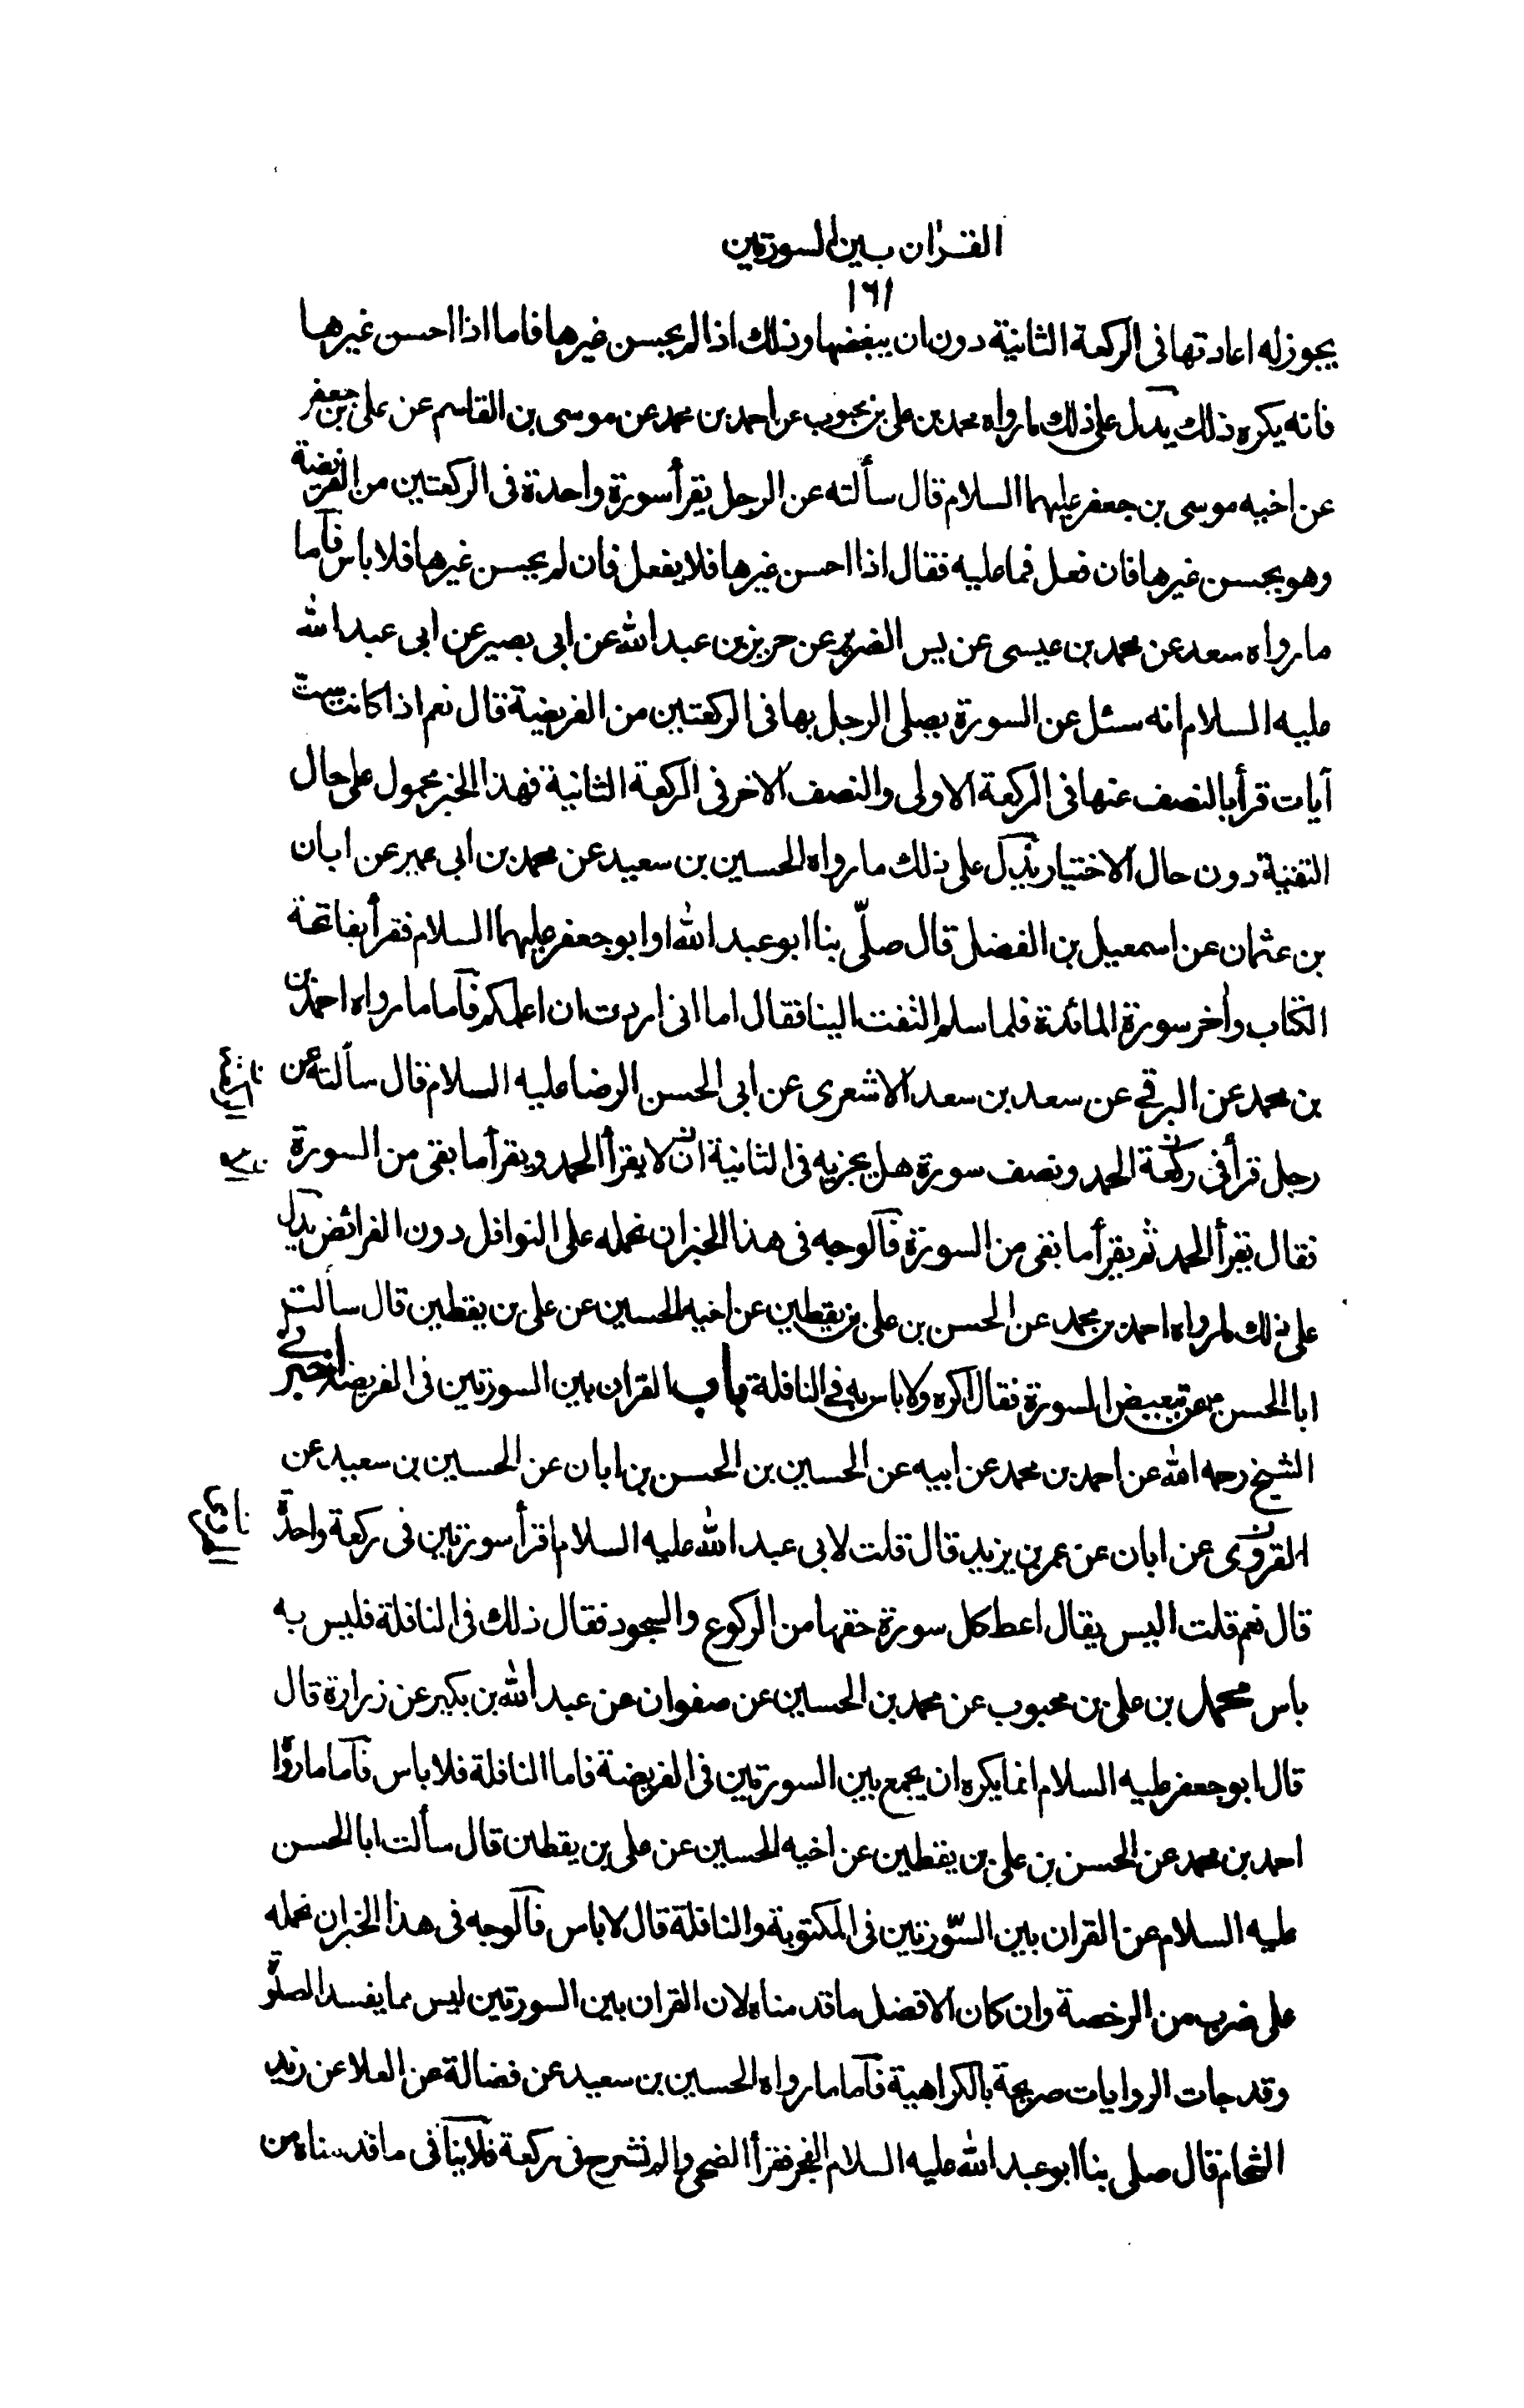 القران بين السورتين
١٦١
يجوز له اعادتها فى الركعة الثانية دون ان يبعضها وذلك اذا لم يحسن غيرها فاما اذا احسن غيرها
فانه يكره ذلك يدل على ذلك ما رواه محمد بن على بن محبوب عن احمد بن محمد عن موسى بن القاسم عن على بن جعفر
عن اخيه موسى بن جعفر عليهما السلام قال سألته عن الرجل يقرأ سورة واحدة فى الركعتين من الفريضة
وهو يحسن غيرها فان فعل فما عليه فقال اذا احسن غيرها فلا يفعل فان لم يحسن غيرها فلا باس فآما
ما رواه سعد عن محمد بن عيسى عن يس الضرير عن حريز بن عبد الله عن ابى بصير عن ابى عبد الله
عليه السلام انه سئل عن السورة يصلى الرجل بها فى الركعتين من الفريضة قال نعم اذا كانت ست
آيات قرأ بالنصف عنها فى الركعة الاولى والنصف الاخر فى الركعة الثانية فهذا الخبر محمول على حال
التقية دون حال الاختيار يدل على ذلك ما رواه الحسين بن سعيد عن محمد بن ابى عمير عن ابان
بن عثمان عن اسمعيل بن الفضل قال صلّى بنا ابو عبد الله او ابو جعفر عليهما السلام فقرأ بفاتحة
الكتاب وأخر سورة المائدة فلما سلم التفت الينا فقال اما انى اردت ان اعلمكم فآما ما رواه احمد بن
بن محمد عن البرقى عن سعد بن سعد الاشعرى عن ابى الحسن الرضا عليه السلام قال سألته عن
رجل قرأ فى ركعة الحمد ونصف سورة هل يجزيه فى الثانية ان لا يقرأ الحمد ويقرأ ما بقى من السورة
فقال يقرأ الحمد ثم يقرأ ما بقى من السورة فآلوجه فى هذا الخبر ان نحمله على النوافل دون الفرائض يدل
على ذلك ما رواه احمد بن محمد عن الحسن بن على بن يقطين عن اخيه الحسين عن على بن يقطين قال سألت
ابا الحسن ع عن تبعيض السورة فقال اكره ولا باس به فى النافلة باب القران بين السورتين فى الفريضة اخبرنى
الشيخ رحمه الله عن احمد بن محمد عن ابيه عن الحسين بن الحسن بن ابان عن الحسين بن سعيد عن
القروى عن ابان عن عمر بن يزيد قال قلت لابى عبد الله عليه السلام اقرأ سورتين فى ركعة واحدة
قال نعم قلت اليس يقال اعط كل سورة حقها من الركوع والسجود فقال ذلك فى النافلة فليس به
باس محمد بن على بن محبوب عن محمد بن الحسين عن صفوان عن عبد الله بن بكير عن زرارة قال
قال ابو جعفر عليه السلام انما يكره ان يجمع بين السورتين فى الفريضة فاما النافلة فلا باس فآما ما رواه
احمد بن محمد عن الحسن بن على بن يقطين عن اخيه الحسين عن على بن يقطين قال سألت ابا الحسن
عليه السلام عن القران بين السّورتين فى المكتوبة والنافلة قال لا باس فآلوجه فى هذا الخبر ان نحمله
على ضرب من الرخصة وان كان الافضل ما قدمناه لان القران بين السورتين ليس مما يفسد الصلوة
وقد جات الروايات صريحة بالكراهية فآما ما رواه الحسين بن سعيد عن فضالة عن العلا عن زيد
الشحام قال صلى بنا ابو عبد الله عليه السلام الفجر فقرأ الضحى والم نشرح فى ركعة فلا ينافى ما قدمناه من